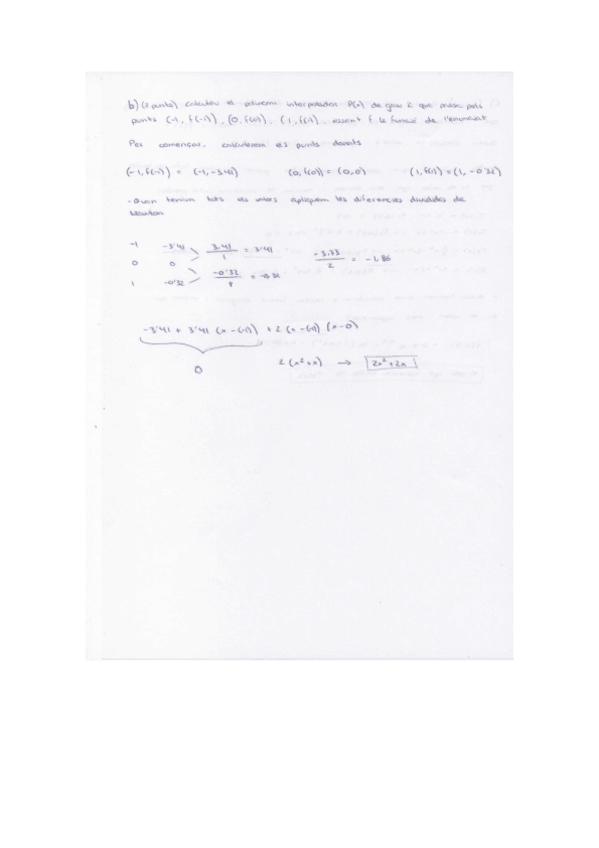 b) (2 punts) calculeu el polinomi interpolador P(x) de grau 2 que passa pels
punts (-1, f(-1)), (0, f(0)), (1, f(1)), essent f la funció de l'enunciat
Per començar, calcularem els punts donats
(-1, f(-1)) = (-1, -3'41) (0, f(0)) = (0, 0) (1, f(1)) = (1, -0'32)
- Quan tenim tots els valors apliquem les diferencies dividides de
Newton
-1 -3'41 3.41/1 = 3'41 -3.73/2 = -1,86
0 0
1 -0'32 -0'32/1 = -0'32
-3'41 + 3'41 (x-(-1)) + 2 (x-(-1)) (x-0)
0 2 (x²+x) → 2x²+2x